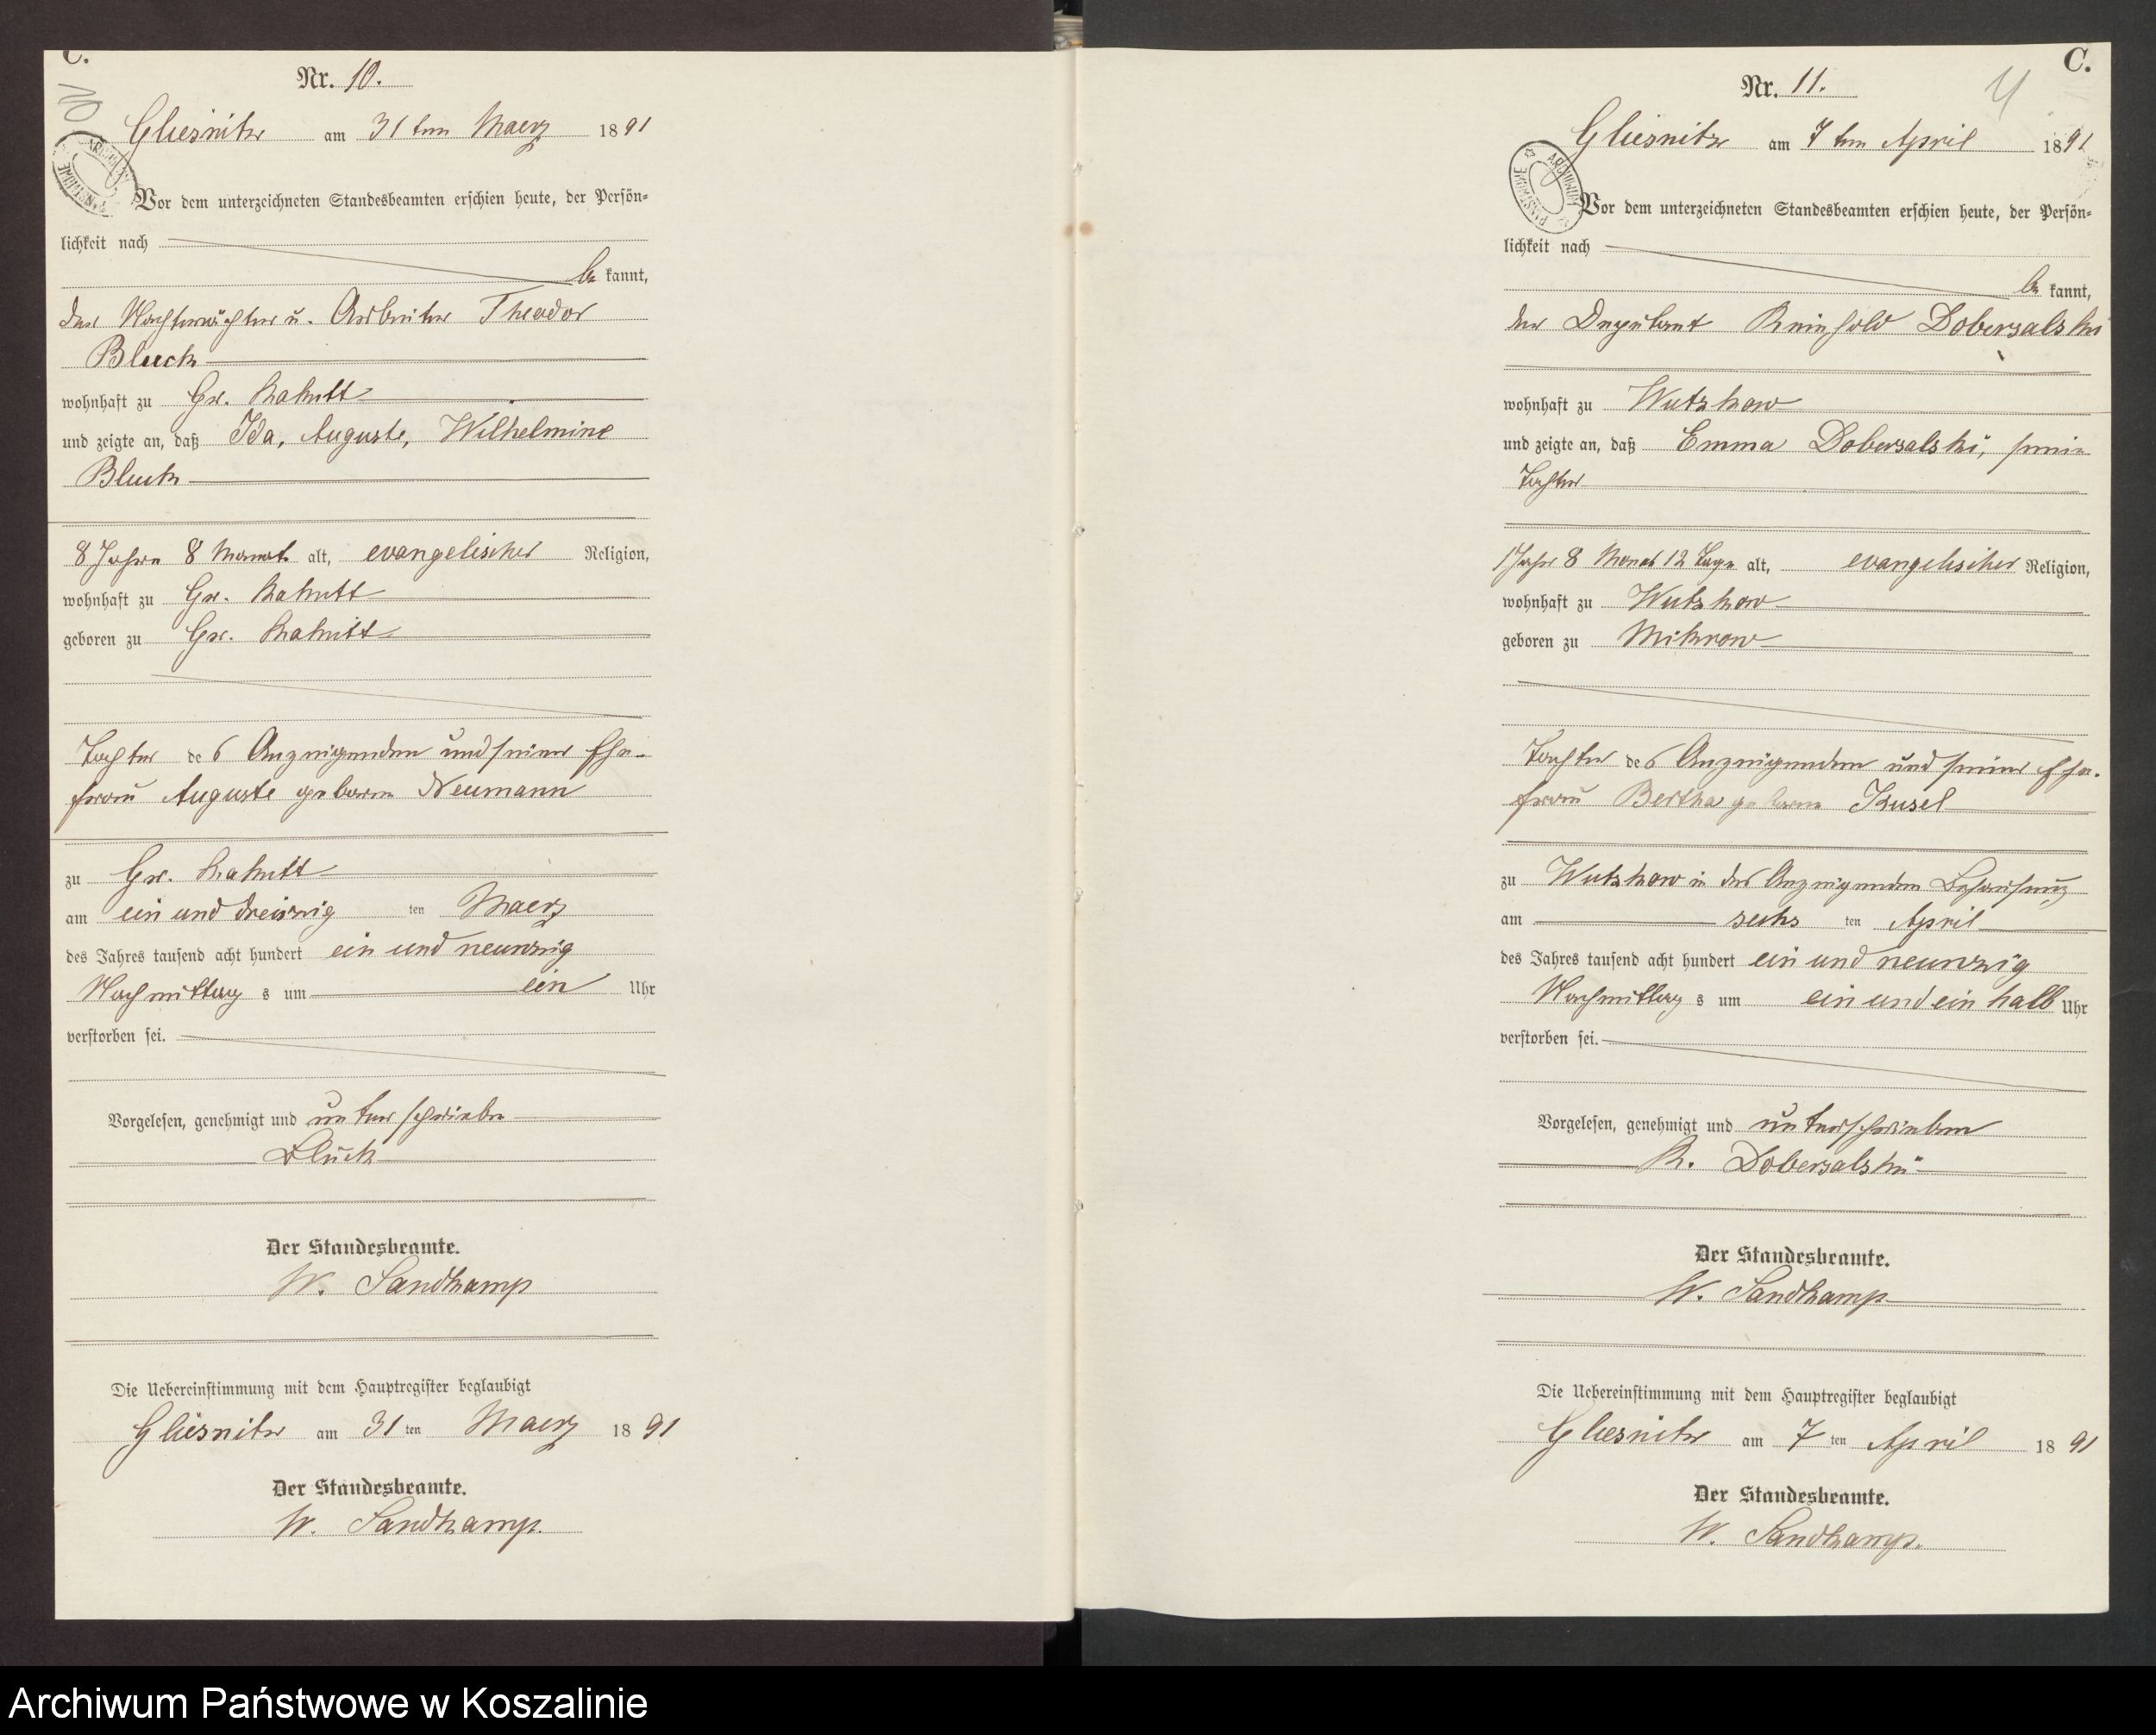 C.
Nr. 10.
10
Gliesnitz am 31ten Maerz 1891
Vor dem unterzeichneten Standesbeamten erschien heute, der Persön=
lichkeit nach
be kannt,
der Nachtwächter u. Arbeiter Theodor
Blueck
wohnhaft zu Gr. Rakitt
und zeigte an, daß Ida, Auguste, Wilhelmine
Blueck
8 Jahre 8 Monat alt, evangelischer Religion,
wohnhaft zu Gr. Rakitt
geboren zu Gr. Rakitt
Tochter des Anzeigenden und seiner Ehe-
frau Auguste geborene Neumann
zu Gr. Rakitt
am ein und dreizig ten Maerz
des Jahres tausend acht hundert ein und neunzig
Nachmittag s um ein Uhr
verstorben sei.
Vorgelesen, genehmigt und unterschrieben
Blück
Der Standesbeamte.
W. Sandkamp
Die Uebereinstimmung mit dem Hauptregister beglaubigt
Gliesnitz am 31 ten Maerz 18 91
Der Standesbeamte.
W. Sandkamp.
C.
Nr. 11.
Gliesnitz am 7ten April 1891
ARCHIWUM PAŃSTWOWE
Vor dem unterzeichneten Standesbeamten erschien heute, der Persön=
lichkeit nach
be kannt,
der Deputant Reinhold Dobersalski
wohnhaft zu Wutzkow
und zeigte an, daß Emma Dobersalski, seine
Tochter
1 Jahr 8 Monat 12 Tage alt, evangelischer Religion,
wohnhaft zu Wutzkow
geboren zu Mikrow
Tochter des Anzeigenden und seiner Ehe-
frau Bertha geborene Kusel
zu Wutzkow in des Anzeigenden Behausung
am sechs ten April
des Jahres tausend acht hundert ein und neunzig
Nachmittag s um ein und ein halb Uhr
verstorben sei.
Vorgelesen, genehmigt und unterschrieben
R. Dobersalski
Der Standesbeamte.
W. Sandkamp
Die Uebereinstimmung mit dem Hauptregister beglaubigt
Gliesnitz am 7 ten April 18 91
Der Standesbeamte.
W. Sandkamp.
Archiwum Państwowe w Koszalinie